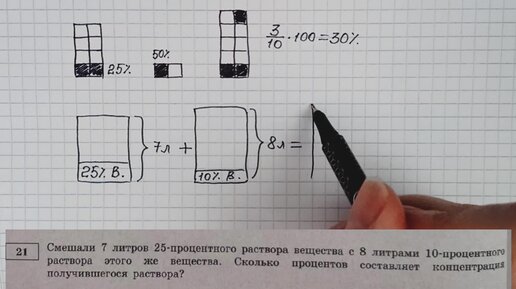 25%
50%
3/10 · 100 = 30%
25% В. } 7л + 10% В. } 8л =
21 Смешали 7 литров 25-процентного раствора вещества с 8 литрами 10-процентного
раствора этого же вещества. Сколько процентов составляет концентрация
получившегося раствора?